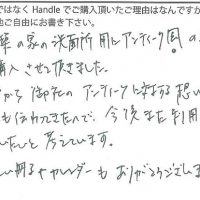 ではなく Handle でご購入頂いたご理由はなんですか
他ご自由にお書き下さい。
築の家の洗面所用にアンティーク の
購入させて頂きました。
から御社のアンティークに対する想い
も伝わってきたので、今後また利用
したいと考えています。
い冊子やカレンダーもありがとうございま